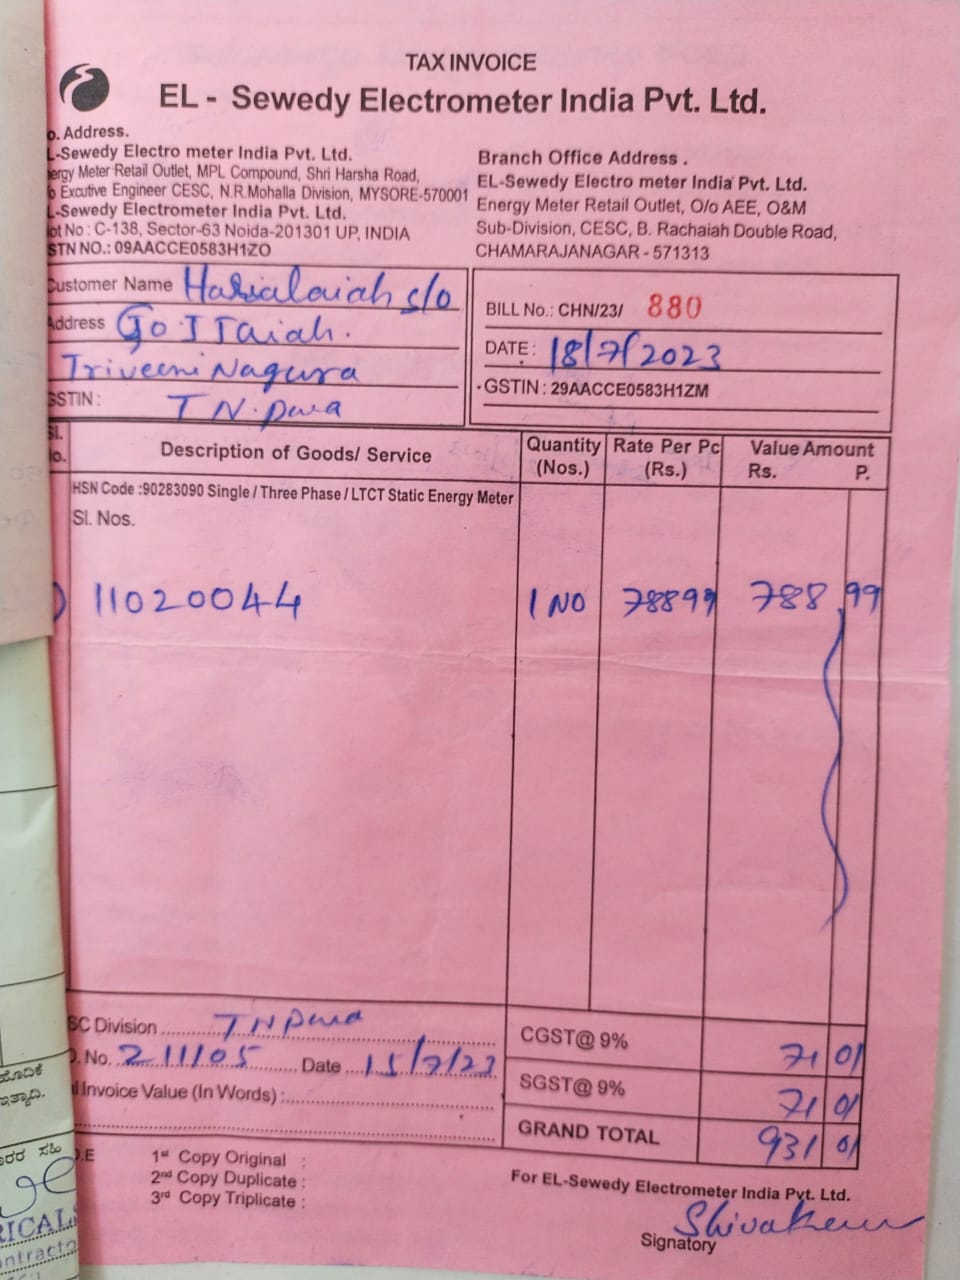 TAX INVOICE
EL - Sewedy Electrometer India Pvt. Ltd.
o. Address.
L-Sewedy Electro meter India Pvt. Ltd.
ergy Meter Retail Outlet, MPL Compound, Shri Harsha Road,
o Excutive Engineer CESC, N.R.Mohalla Division, MYSORE-570001
L-Sewedy Electrometer India Pvt. Ltd.
ot No : C-138, Sector-63 Noida-201301 UP, INDIA
STN NO.: 09AACCE0583H1ZO
Branch Office Address .
EL-Sewedy Electro meter India Pvt. Ltd.
Energy Meter Retail Outlet, O/o AEE, O&M
Sub-Division, CESC, B. Rachaiah Double Road,
CHAMARAJANAGAR - 571313
ustomer Name Harsalaiah s/o
Address
Triveeni Nagura
GSTIN : T N. pura
BILL No.: CHN/23/ 880
DATE : 18/7/2023
GSTIN : 29AACCE0583H1ZM
Sl. No. Description of Goods/ Service Quantity (Nos.) Rate Per Pc (Rs.) Value Amount Rs. P.
HSN Code :90283090 Single / Three Phase / LTCT Static Energy Meter
Sl. Nos.
11020044 1 NO 78899 788 99
SC Division T N pura
No. 211105 Date 15/7/23
l Invoice Value (In Words) :
CGST@ 9% 71 01
SGST@ 9% 71 01
GRAND TOTAL 931 01
.E
1st Copy Original :
2nd Copy Duplicate :
3rd Copy Triplicate :
For EL-Sewedy Electrometer India Pvt. Ltd.
Signatory
ಇತ್ಯಾದಿ.
RICALS
ontracto